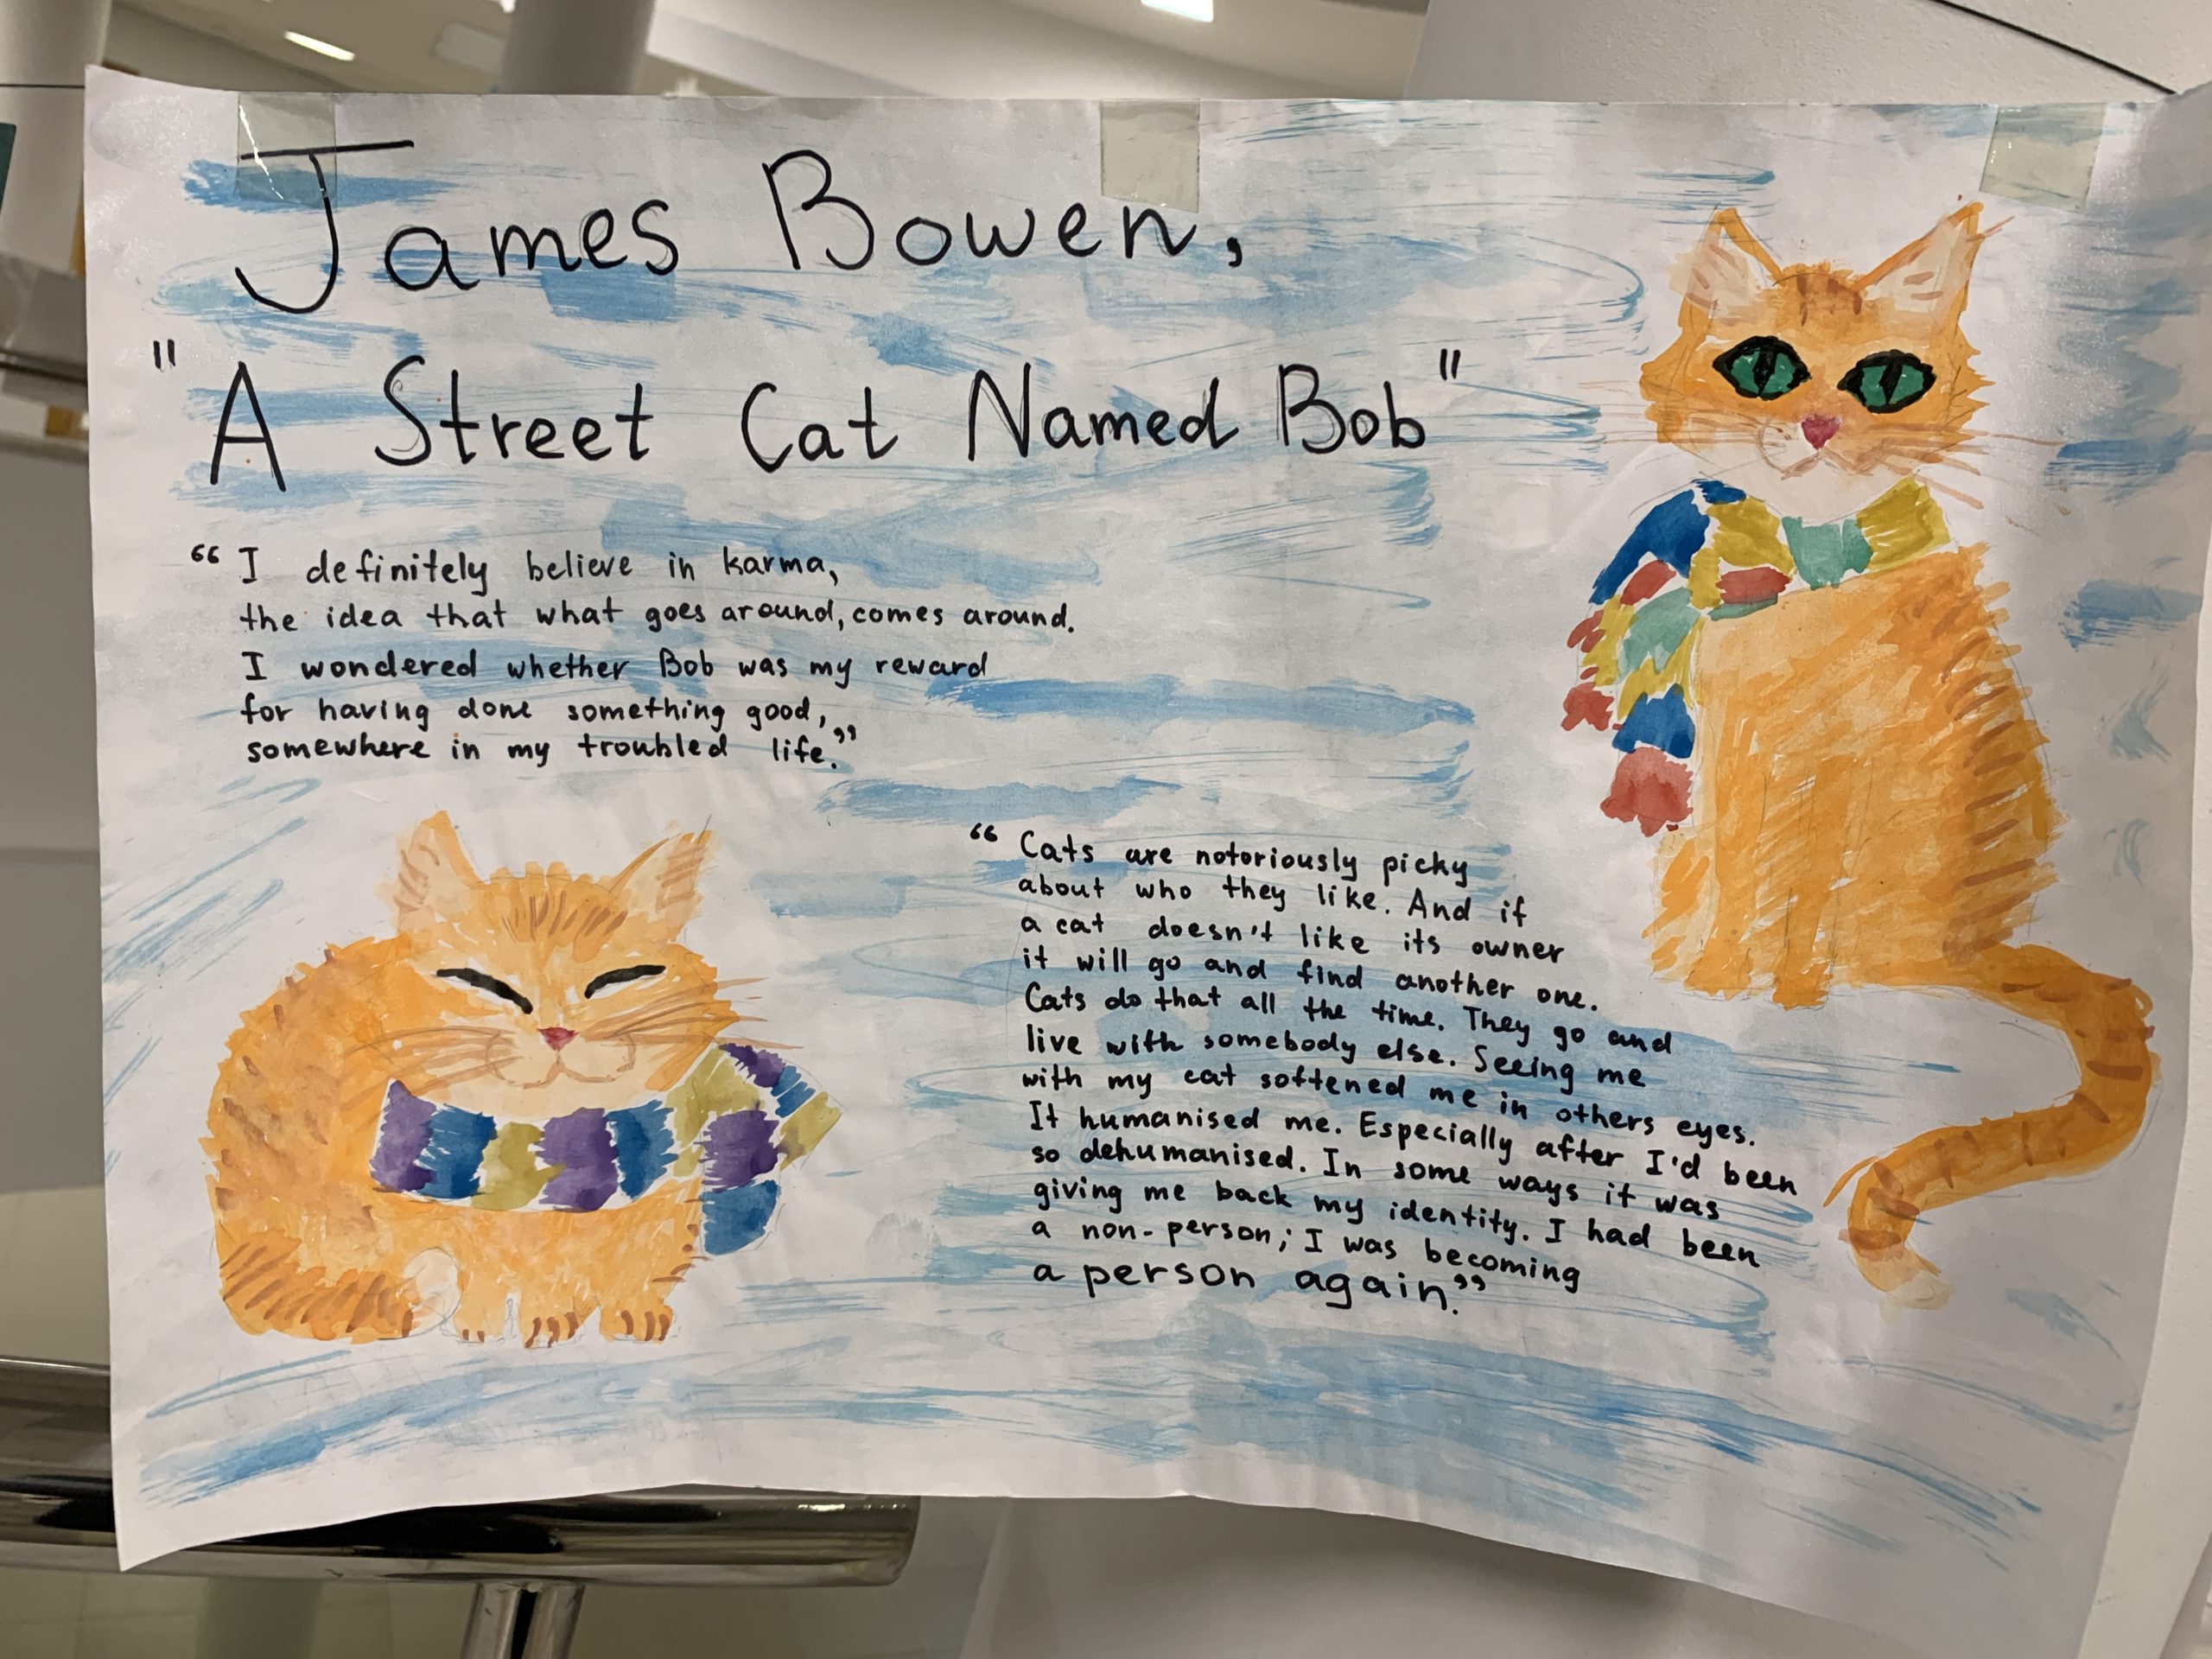 James Bowen,
"A Street Cat Named Bob"
“I definitely believe in karma,
the idea that what goes around, comes around.
I wondered whether Bob was my reward
for having done something good,
somewhere in my troubled life.”
“Cats are notoriously picky
about who they like. And if
a cat doesn't like its owner
it will go and find another one.
Cats do that all the time. They go and
live with somebody else. Seeing me
with my cat softened me in others eyes.
It humanised me. Especially after I'd been
so dehumanised. In some ways it was
giving me back my identity. I had been
a non-person; I was becoming
a person again.”